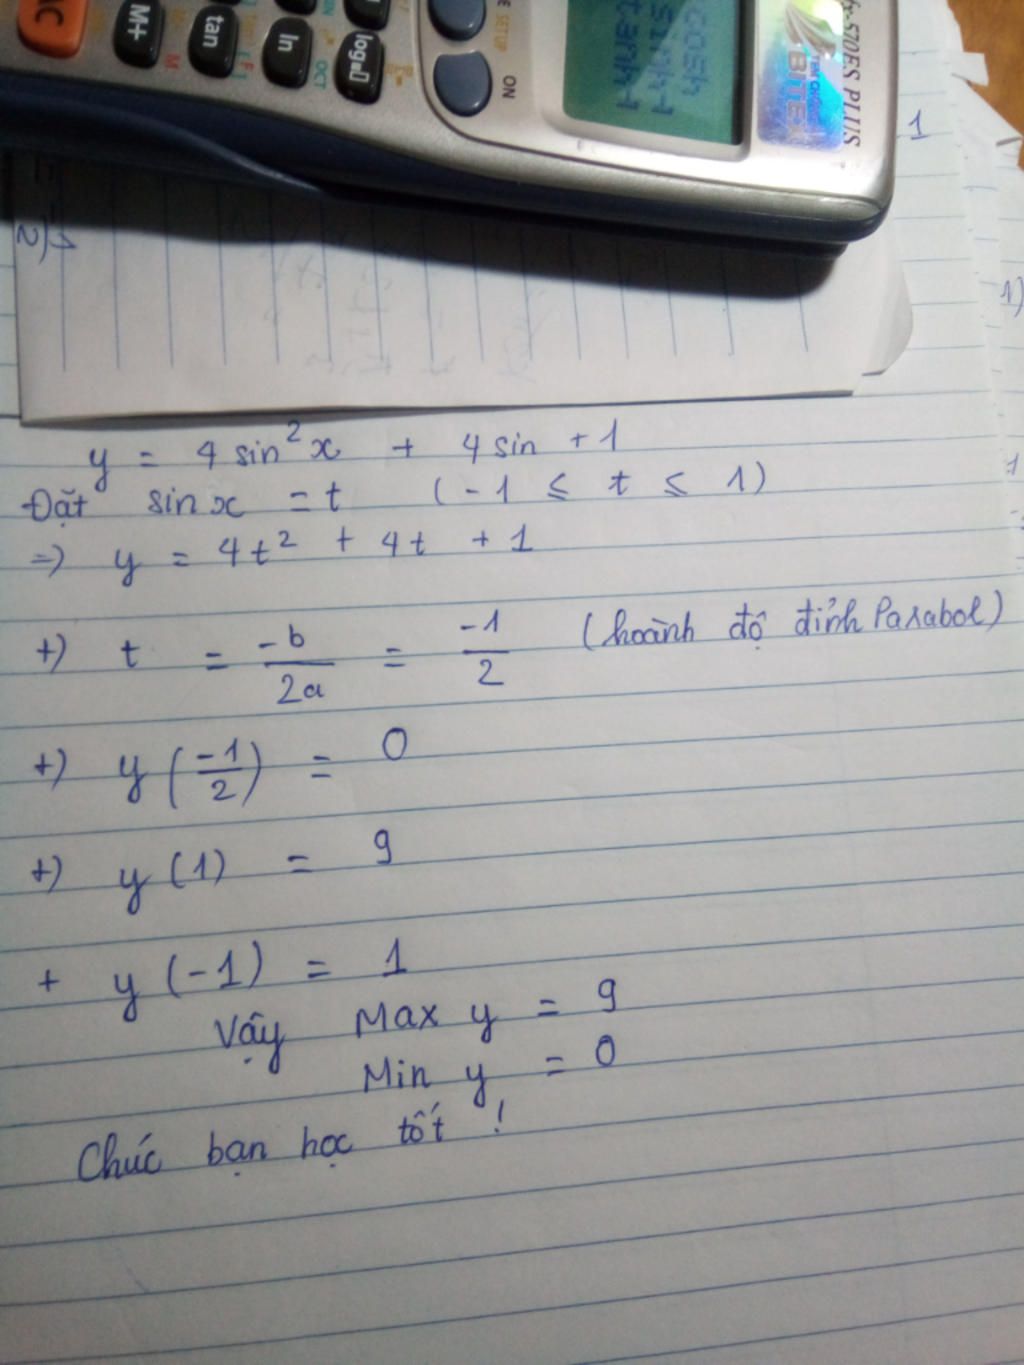 AC
M+
M
tan
ln
OCT
log
SETUP
ON
cosh
sinh-1
tanh-1
BITEX
fx-570ES PLUS
1
y = 4 sin²x + 4 sin + 1
Đặt sin x = t (-1 ≤ t ≤ 1)
=> y = 4t² + 4t + 1
+) t = -b/2a = -1/2 (hoành độ đỉnh Parabol)
+) y(-1/2) = 0
+) y(1) = 9
+ y(-1) = 1
Vậy Max y = 9
Min y = 0
Chúc bạn học tốt !